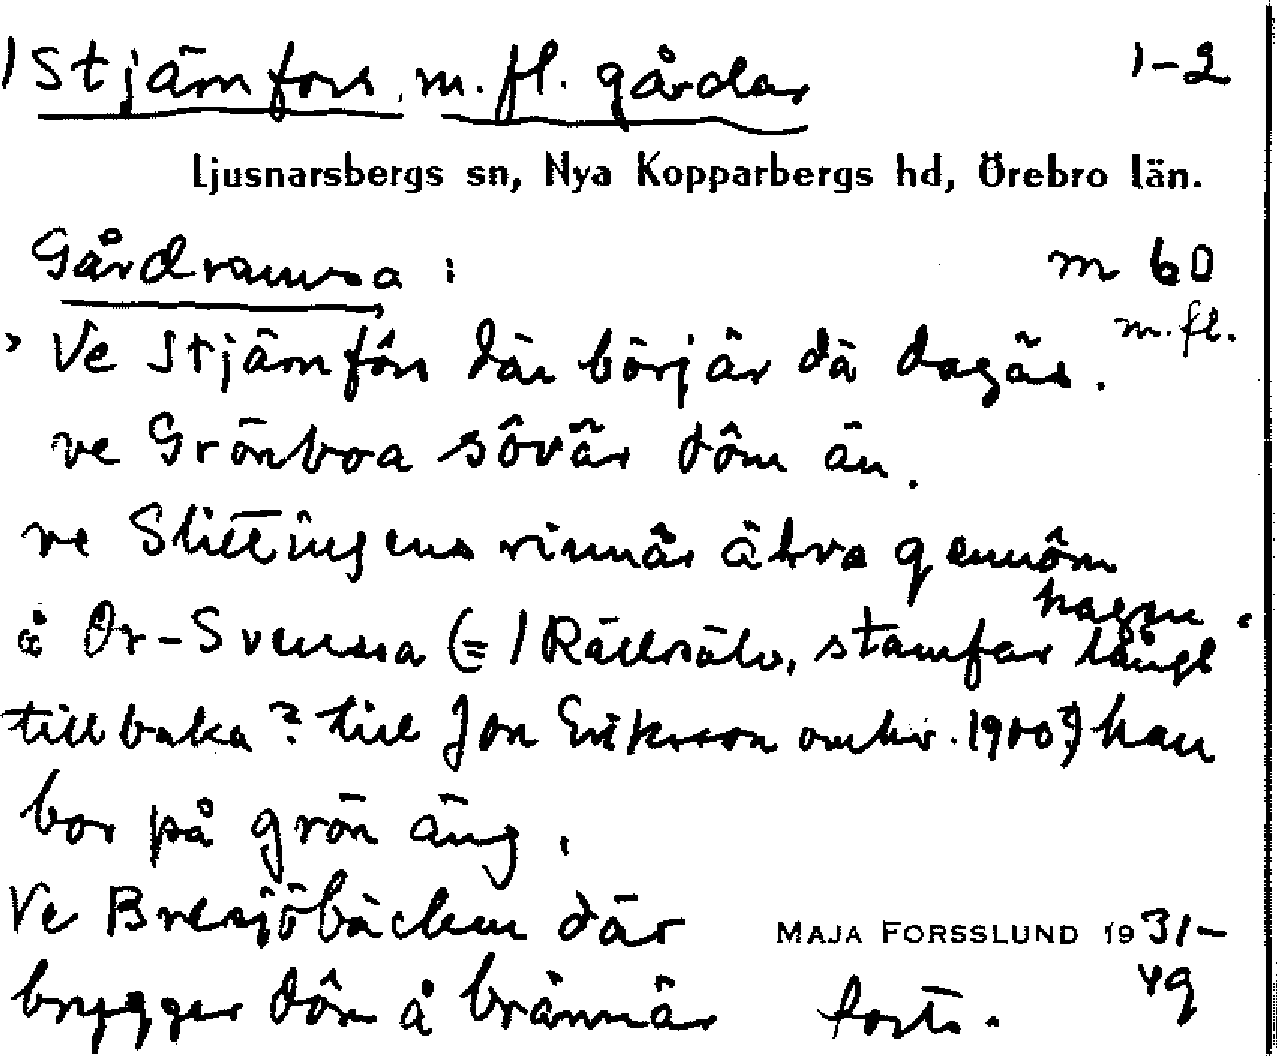 /Stjärnfors, m. fl. gårdar 1-2
Ljusnarsbergs sn, Nya Kopparbergs hd, Örebro län.
Gårdramsa : m 60
m. fl.
Ve Stjärnfôrs där börjär dä dagäs.
ve Grönboa sôvär dôm än.
ve Slittingens rinnär älva gennôm
hagen.
å Or-Svenssa (= / Rällsälv, stamfar långt
tillbaka? till Jon Eriksson omkr. 1900?) han
bor på grön äng.
Ve Bresjöbäcken där
brygger dôm å brännär forts.
MAJA FORSSLUND 1931-
49